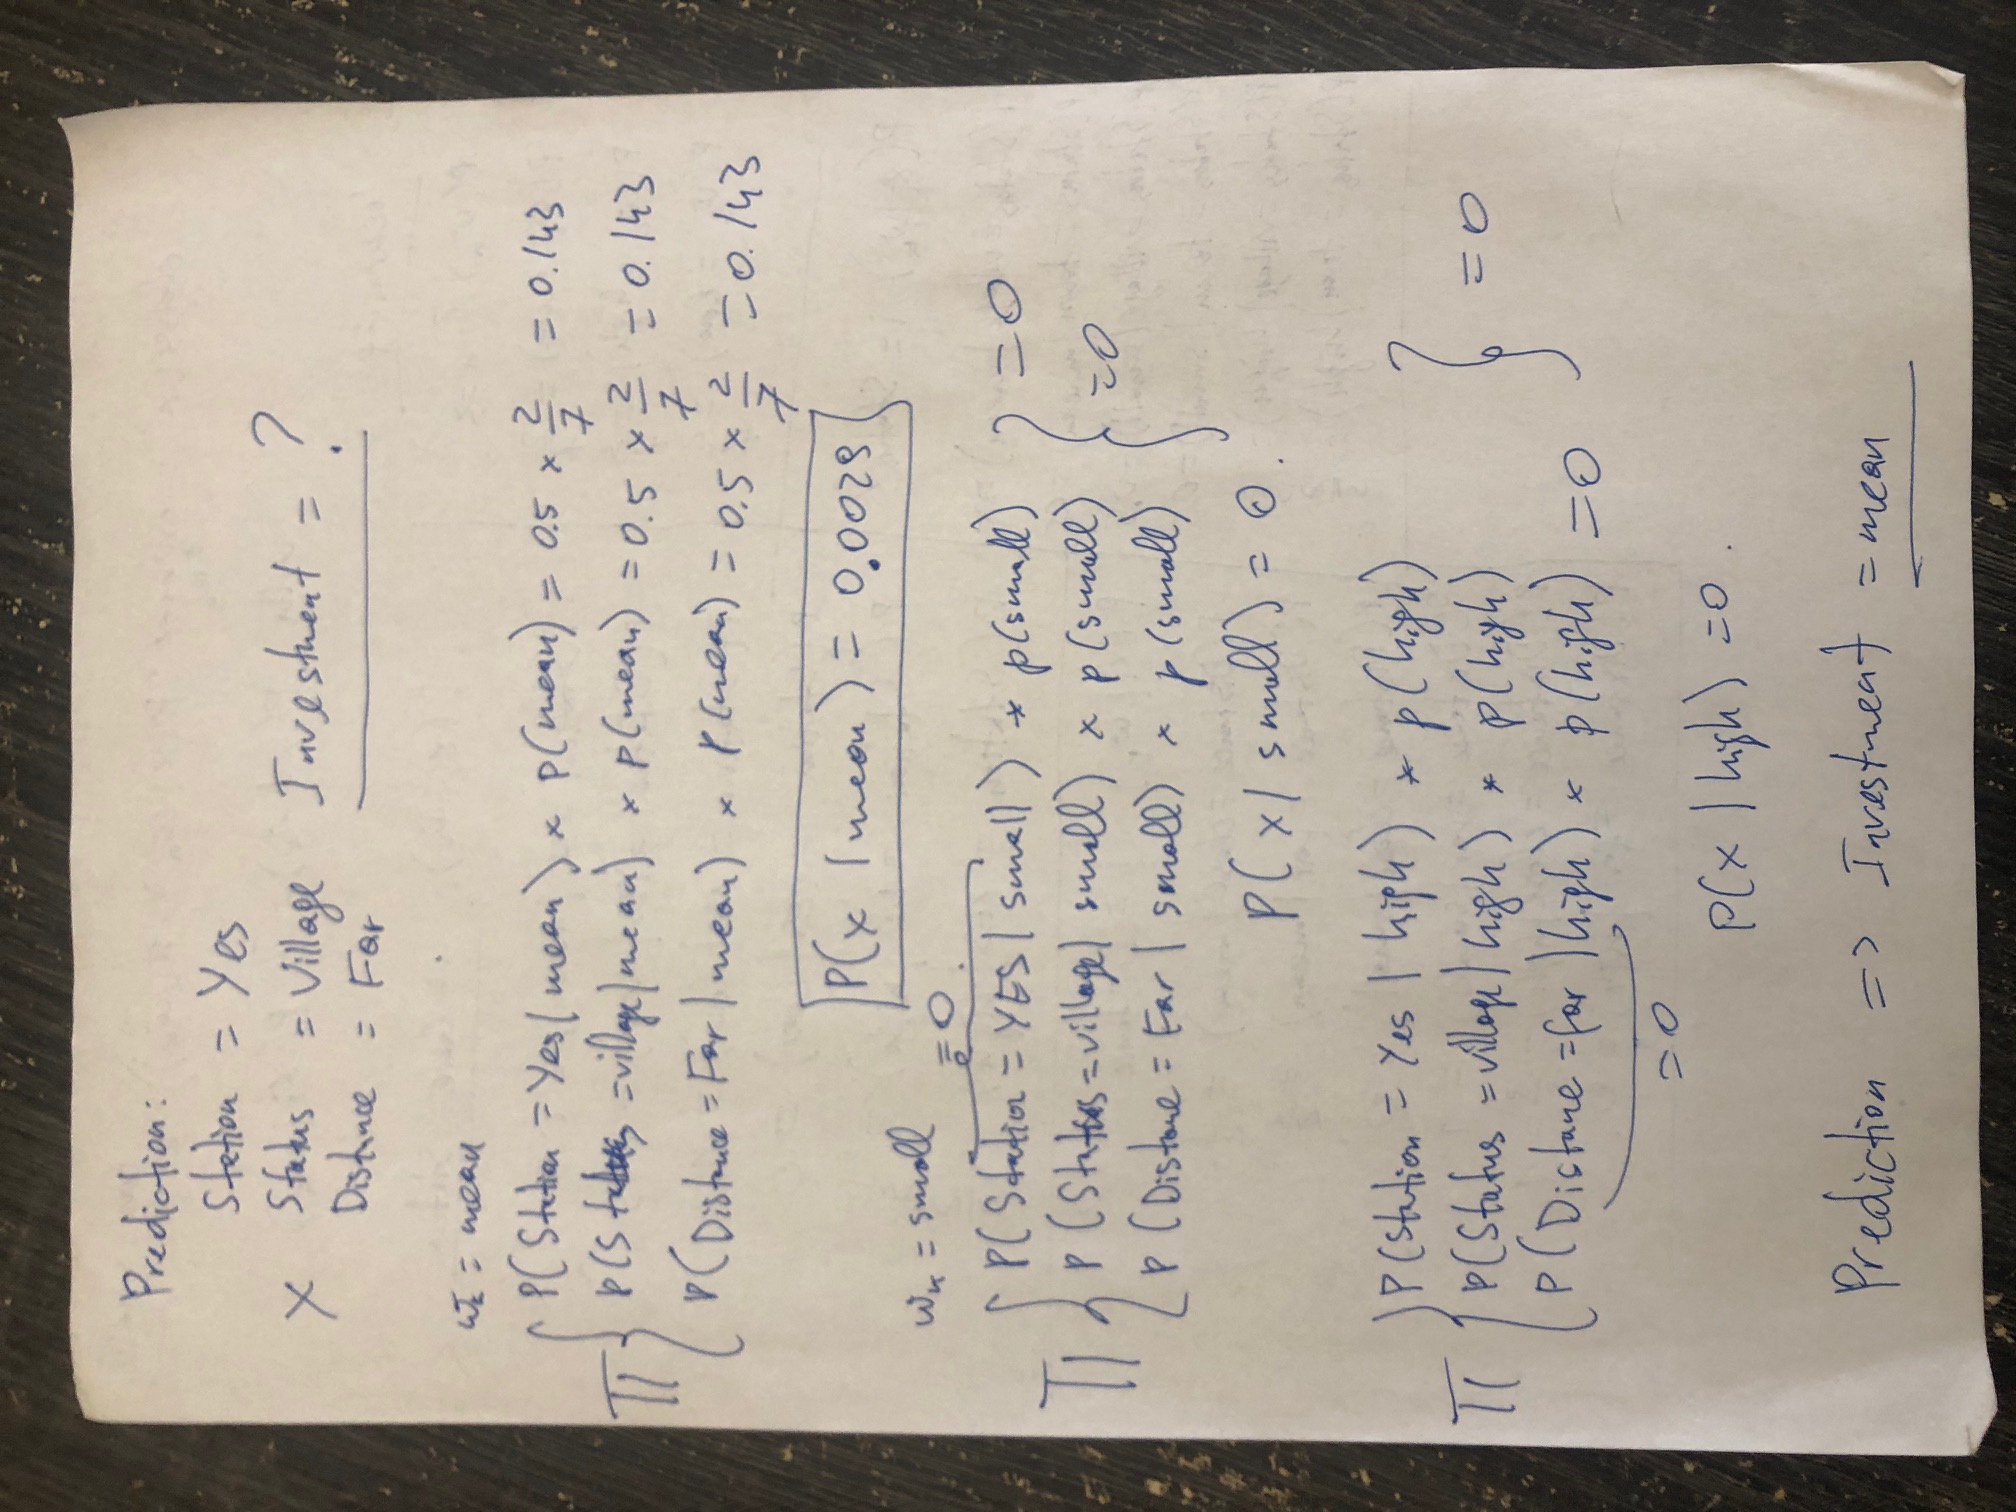 Prediction:
Station = Yes
X Status = Village Investment = ?
Distance = Far
ωk = mean
P(Station = Yes | mean) × p(mean) = 0.5 × 2/7 = 0.143
Π { P(Status = village | mean) × p(mean) = 0.5 × 2/7 = 0.143
P(Distance = Far | mean) × P(mean) = 0.5 × 2/7 = 0.143
P(x | mean) = 0.0029
ωk = small
= 0.
P(Station = YES | small) * p(small) = 0
Π { P(Status = village | small) × p(small) } = 0
P(Distane = Far | small) × p(small)
P(x | small) = 0.
P(Station = Yes | high) * p(high)
Π { P(Status = village | high) * p(high) } = 0
P(Distane = far | high) × p(high) = 0
= 0
P(x | high) = 0.
Prediction => Investment = mean